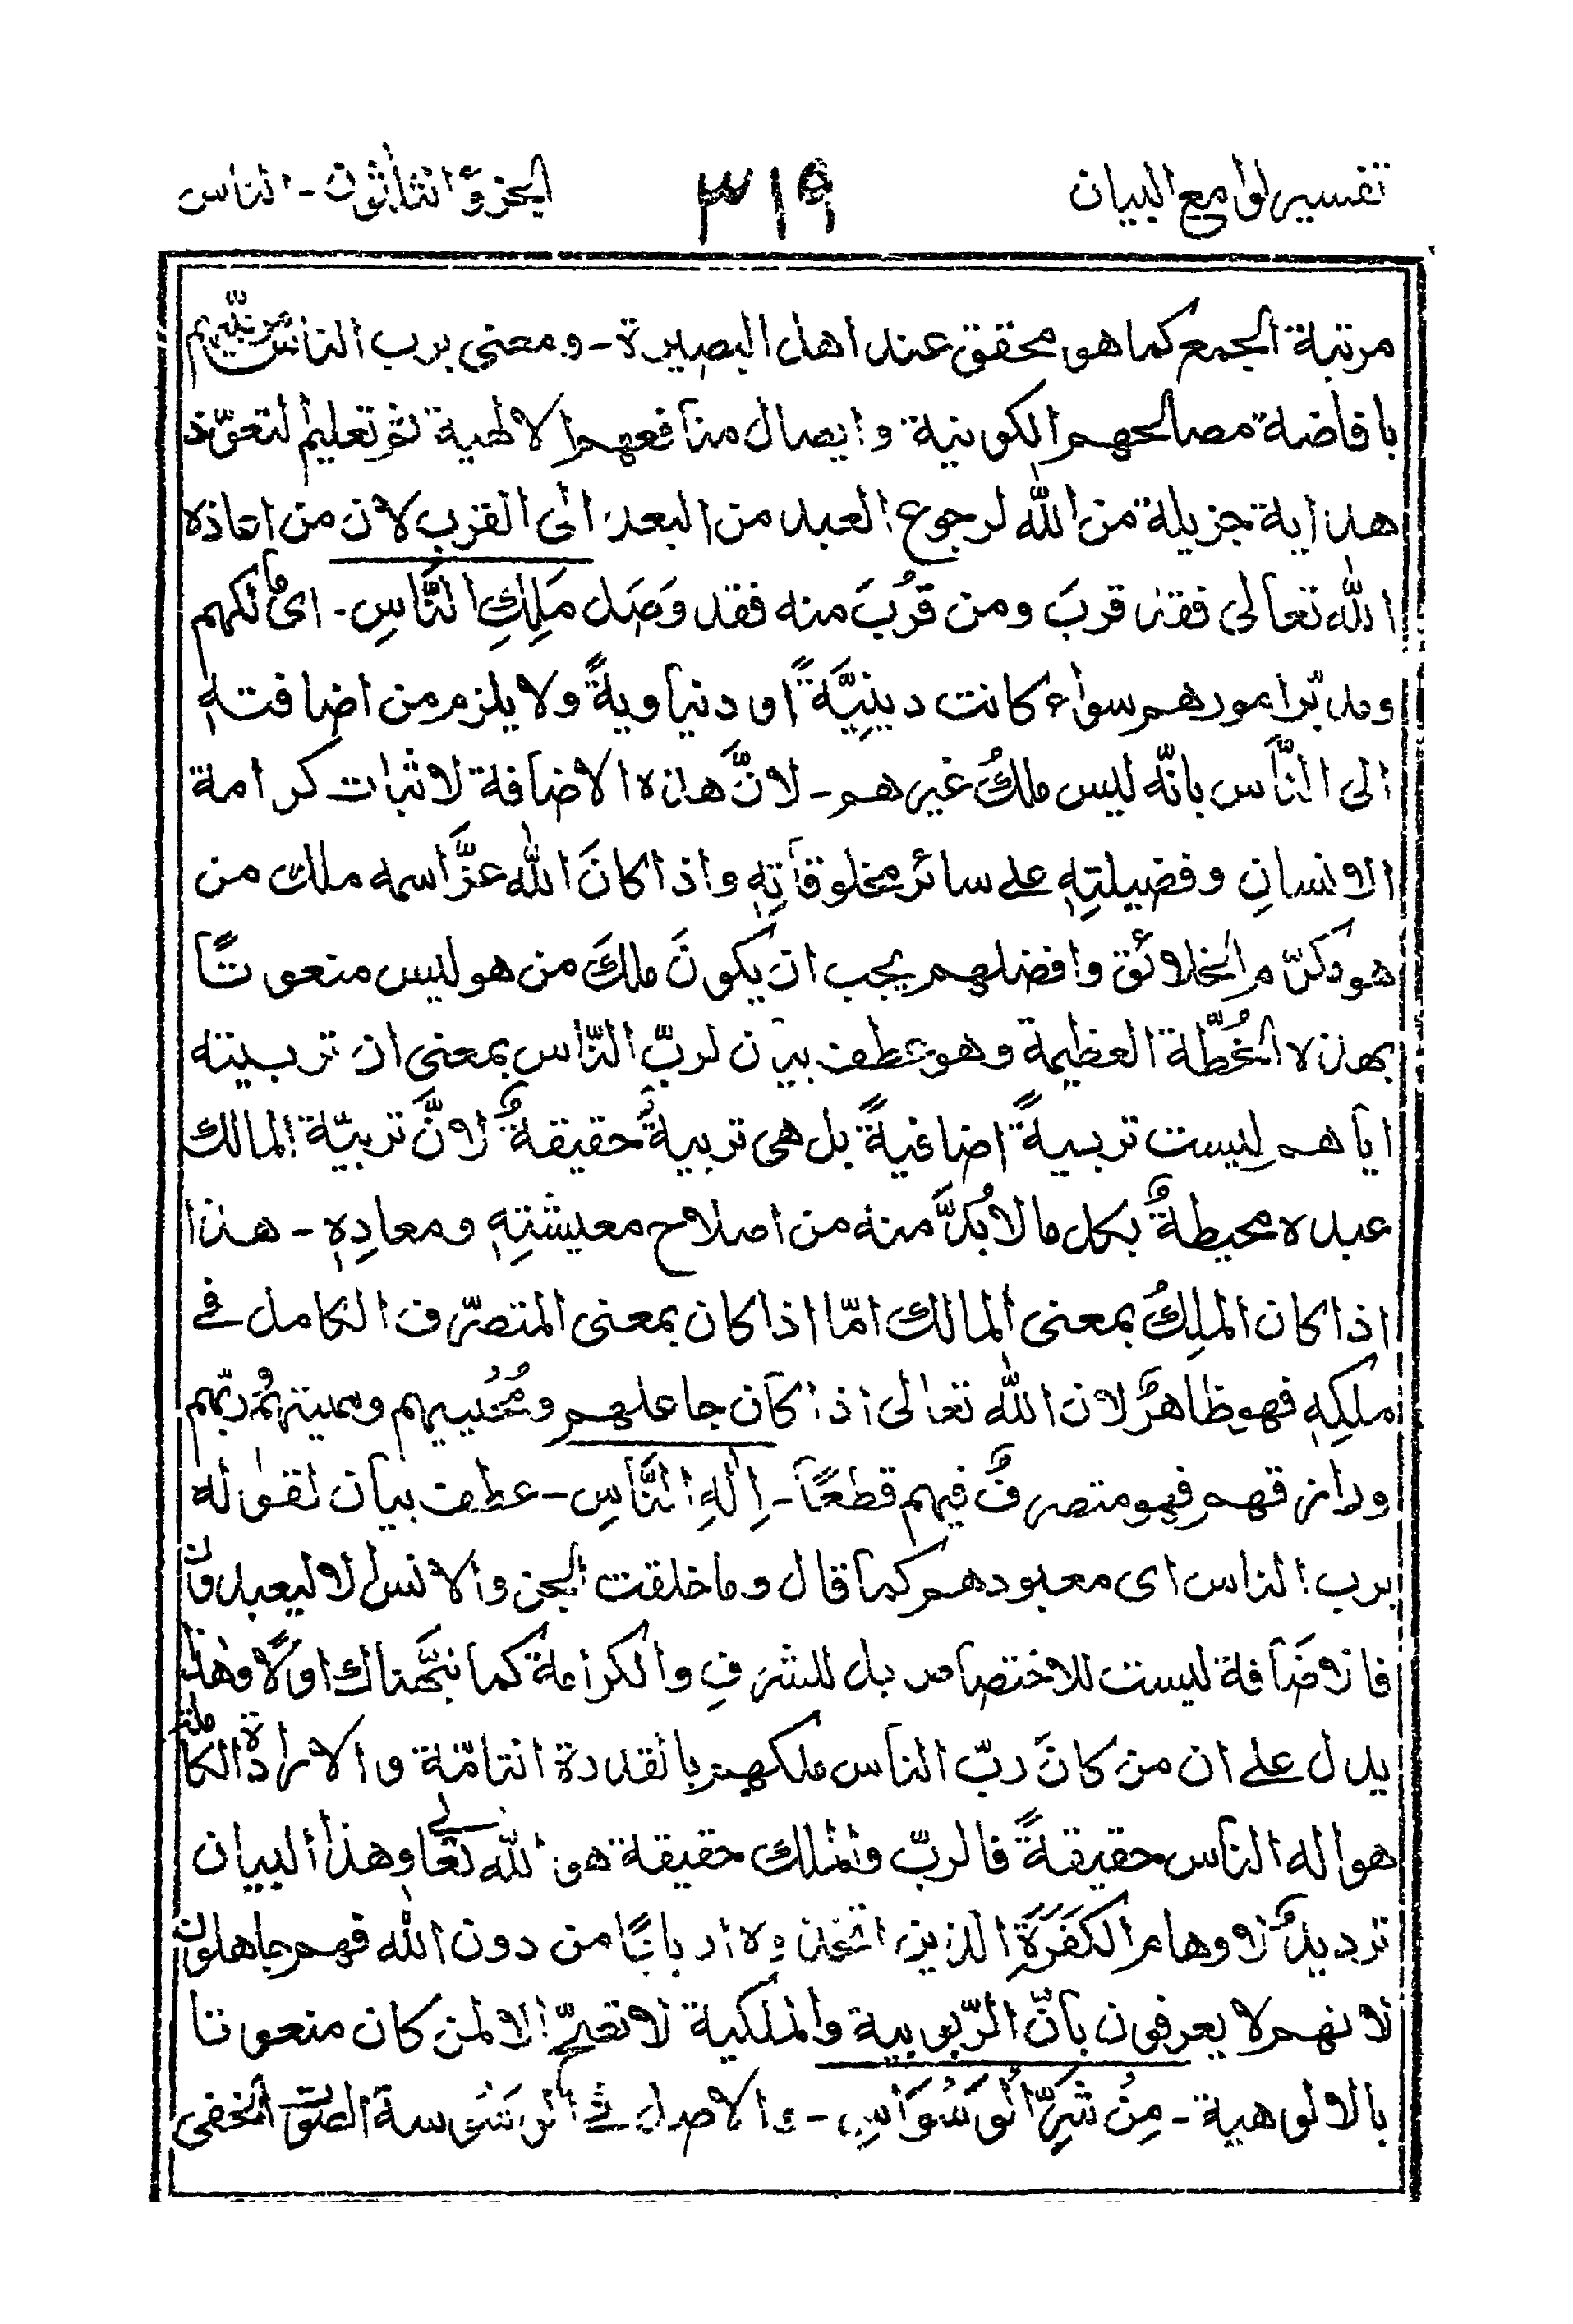 تفسير لوامع البيان ٣١٩ الجزؤ الثلثون - الناس
مرتبة الجمع كما هو محقق عند اهل البصيرة - ومعنى برب الناس مربيهم
بافاضة مصالحهم الكونية وايصال منافعهم الالهية ثم تعليم التعوّذ
هداية جزيلة من الله لرجوع العبد من البعد الى القرب لان من اعاذه
الله تعالى فقد قربَ ومن قَرُبَ منه فقد وَصَل مَلِكِ النَّاسِ - اى مالكهم
ومدبّر امورهم سواء كانت دينِيَّةً او دنياويةً ولا يلزم من اضافتهٖ
الى النَّاس بانّه ليس ملكُ غيرهم - لانَّ هذه الاضافة لاثبات كرامة
الانسانِ وفضيلتِهٖ على سائر مخلوقاتِهٖ واذا كانَ الله عزَّ اسمه ملك من
هو مكرّم الخلائق وافضلهم يجب ان يكونَ ملكَ من هو ليس منعوتًا
بهذه الخُطّة العظيمة وهو عطف بيان لربّ النّاس بمعنى ان تربيته
اياهم ليست تربيةً اضافيةً بل هى تربيةٌ حقيقةٌ لانَّ تربيّة المالك
عبده محيطةٌ بكل ما لابُدَّ منه من اصلاح معيشتِهٖ ومعادِهٖ - هذا
اذا كان الملِكُ بمعنى المالك امّا اذا كان بمعنى المتصرّف الكامل فے
ملكِهٖ فهو ظاهرٌ لان الله تعالى اذا كان جاعلهم ومُحْيِيهم ومميتهُم ربّهم
ورازقهم فهو متصرفٌ فيهم قطعًا - اِلٰهِ النَّاسِ - عطف بيان لقوله
برب الناس اى معبودهم كما قال وما خلقت الجن والانس الا ليعبدون
فالاضَافة ليست للاختصاص بل للشرفِ والكرامة كما نبَّهناك اوّلًا وهذا
يدل على ان من كانَ ربّ الناس ملكهم بالقدرة التامّة والارادة الكاملة
هو اله الناس حقيقةً فالربّ والملك حقيقة هو الله تعالى وهذا البيان
ترديدٌ لاوهام الكَفَرَةِ الذين اتخذوه اربابًا من دون الله فهم جاهلون
لانهم لا يعرفون بانّ الرّبوبية والملكية لا تصحّ الا لمن كان منعوتا
بالالوهية - مِنْ شَرِّ الْوَسْوَاسِ - والاصل فے الوَسْوسة الصوت الخفى